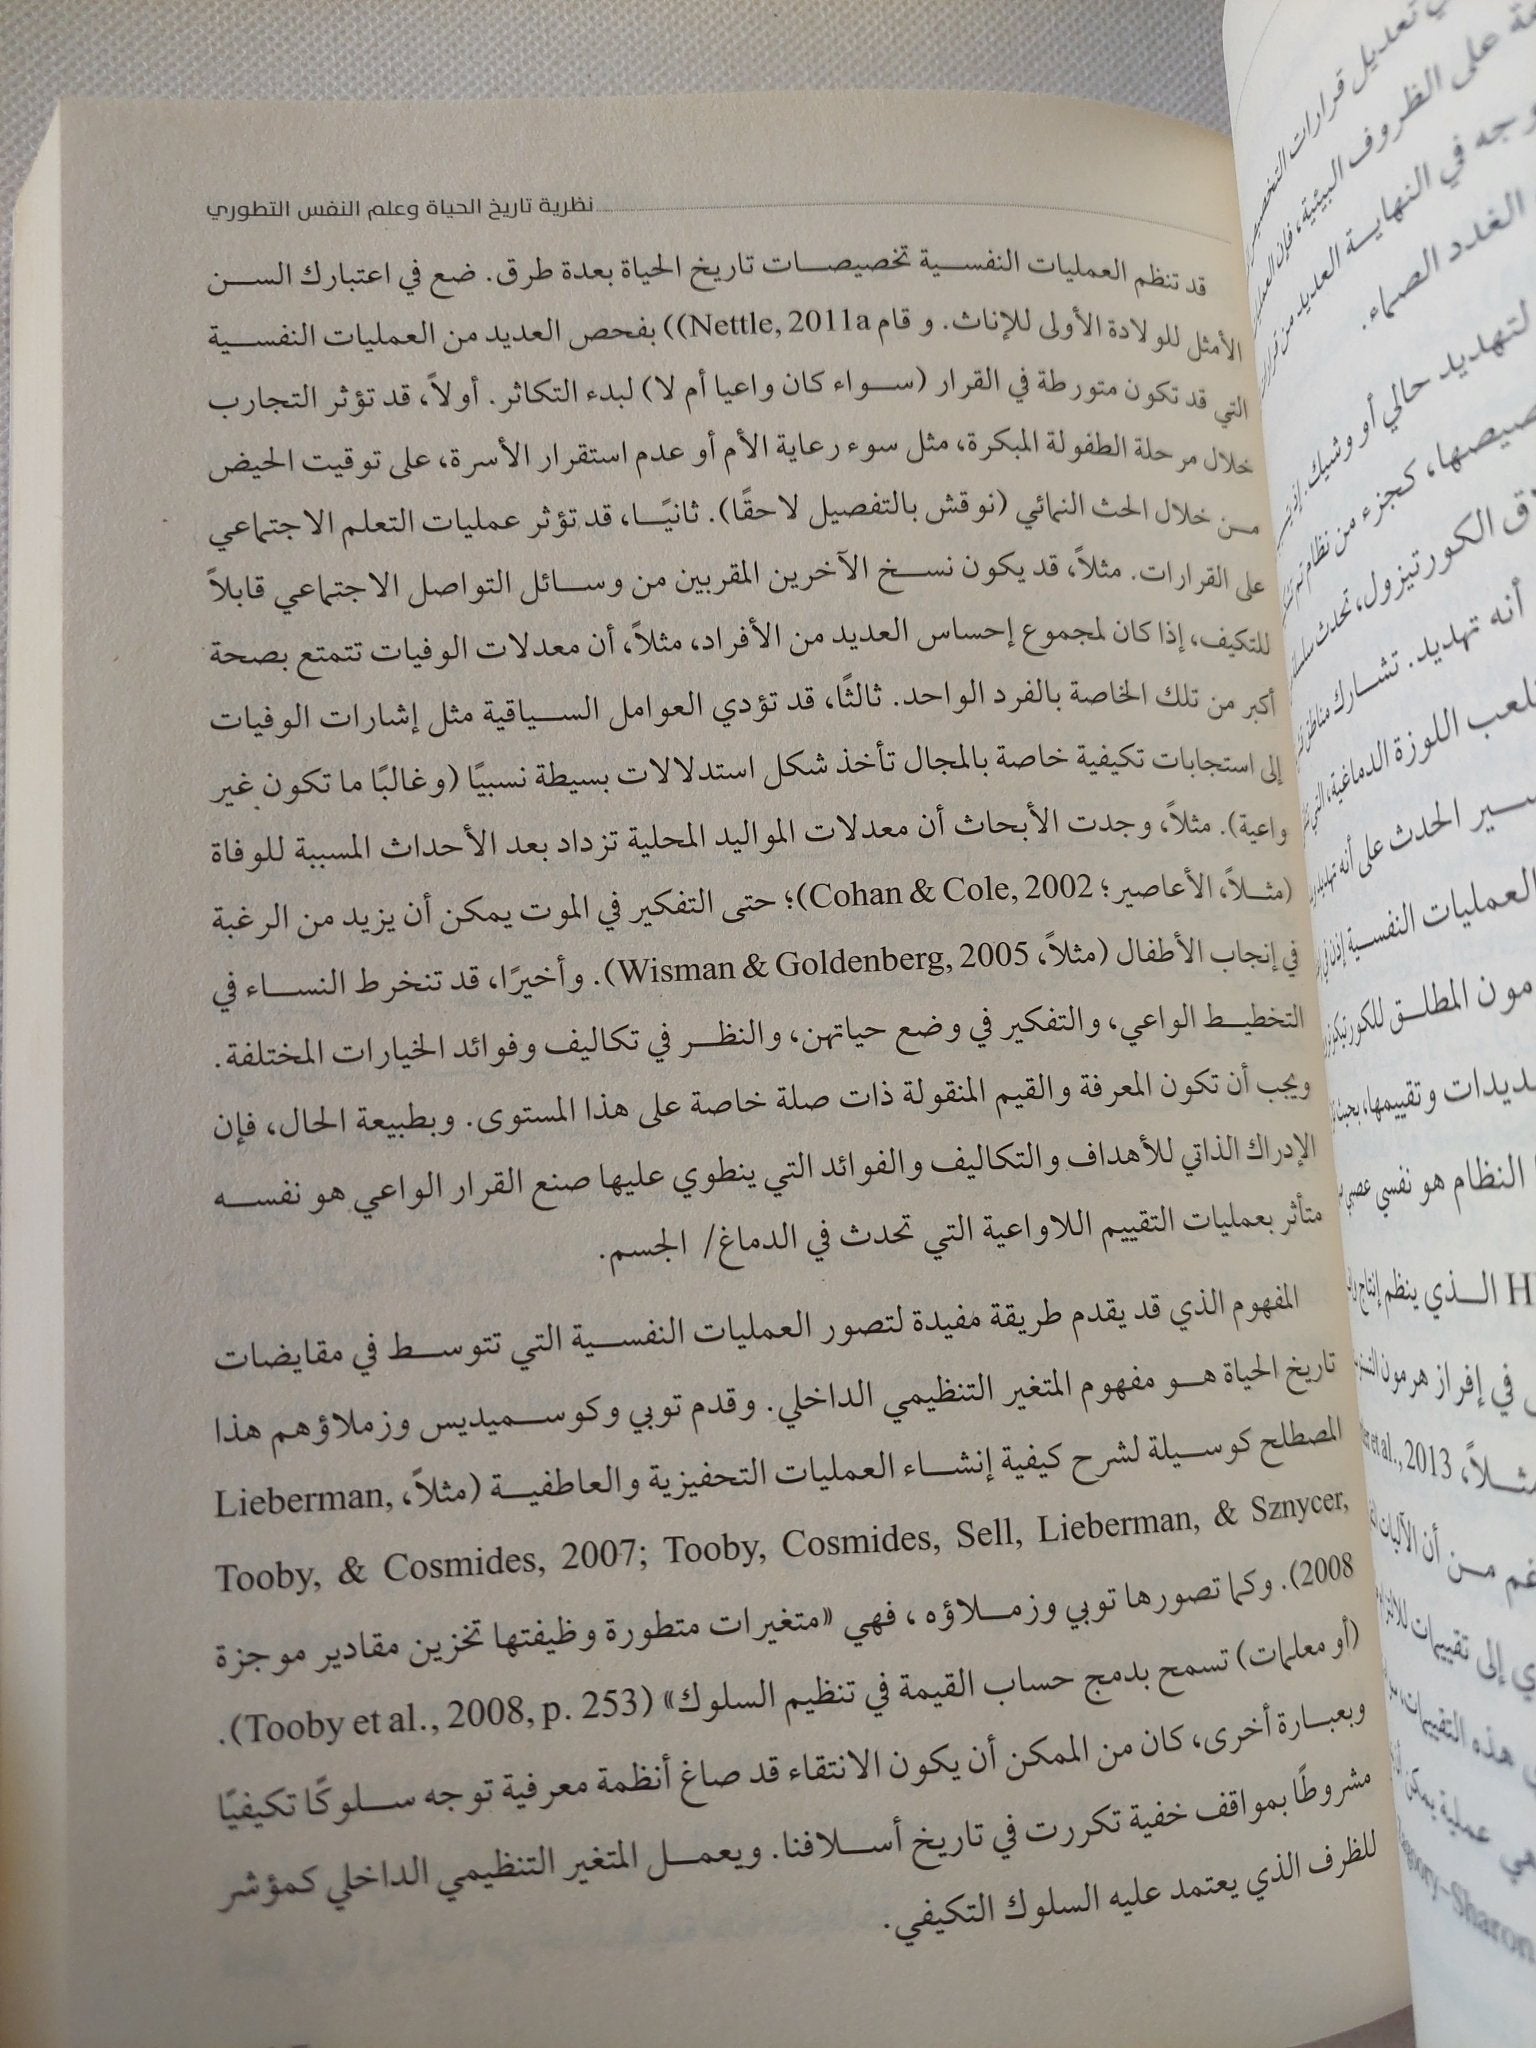 نظرية تاريخ الحياة وعلم النفس التطوري
قد تنظم العمليات النفسية تخصيصات تاريخ الحياة بعدة طرق. ضع في اعتبارك السن
الأمثل للولادة الأولى للإناث. و قام Nettle, 2011a)) بفحص العديد من العمليات النفسية
التي قد تكون متورطة في القرار (سواء كان واعيا أم لا) لبدء التكاثر. أولاً، قد تؤثر التجارب
خلال مرحلة الطفولة المبكرة، مثل سوء رعاية الأم أو عدم استقرار الأسرة، على توقيت الحيض
من خلال الحث النمائي (نوقش بالتفصيل لاحقًا). ثانيًا، قد تؤثر عمليات التعلم الاجتماعي
على القرارات. مثلاً، قد يكون نسخ الآخرين المقربين من وسائل التواصل الاجتماعي قابلاً
للتكيف، إذا كان لمجموع إحساس العديد من الأفراد، مثلاً، أن معدلات الوفيات تتمتع بصحة
أكبر من تلك الخاصة بالفرد الواحد. ثالثًا، قد تؤدي العوامل السياقية مثل إشارات الوفيات
إلى استجابات تكيفية خاصة بالمجال تأخذ شكل استدلالات بسيطة نسبيًا (وغالبًا ما تكون غير
واعية). مثلاً، وجدت الأبحاث أن معدلات المواليد المحلية تزداد بعد الأحداث المسببة للوفاة
(مثلاً، الأعاصير؛ Cohan & Cole, 2002)؛ حتى التفكير في الموت يمكن أن يزيد من الرغبة
في إنجاب الأطفال (مثلاً، Wisman & Goldenberg, 2005). وأخيرًا، قد تنخرط النساء في
التخطيط الواعي، والتفكير في وضع حياتهن، والنظر في تكاليف وفوائد الخيارات المختلفة.
ويجب أن تكون المعرفة والقيم المنقولة ذات صلة خاصة على هذا المستوى. وبطبيعة الحال، فإن
الإدراك الذاتي للأهداف والتكاليف والفوائد التي ينطوي عليها صنع القرار الواعي هو نفسه
متأثر بعمليات التقييم اللاواعية التي تحدث في الدماغ/ الجسم.
المفهوم الذي قد يقدم طريقة مفيدة لتصور العمليات النفسية التي تتوسط في مقايضات
تاريخ الحياة هو مفهوم المتغير التنظيمي الداخلي. وقدم توبي وكوسميديس وزملاؤهم هذا
المصطلح كوسيلة لشرح كيفية إنشاء العمليات التحفيزية والعاطفية (مثلاً، Lieberman,
Tooby, & Cosmides, 2007; Tooby, Cosmides, Sell, Lieberman, & Sznycer,
2008). وكما تصورها توبي وزملاؤه ، فهي «متغيرات متطورة وظيفتها تخزين مقادير موجزة
(أو معلمات) تسمح بدمج حساب القيمة في تنظيم السلوك» (Tooby et al., 2008, p. 253).
وبعبارة أخرى، كان من الممكن أن يكون الانتقاء قد صاغ أنظمة معرفية توجه سلوكًا تكيفيًا
مشروطًا بمواقف خفية تكررت في تاريخ أسلافنا. ويعمل المتغير التنظيمي الداخلي كمؤشر
للظرف الذي يعتمد عليه السلوك التكيفي.
تعديل قرارات
على الظروف البيئية، فإن
وجه في النهاية العديد من
الغدد الصماء.
لتهديد حالي أو وشيك.
كجزء من نظام
الكورتيزول، تحدث
أنه تهديد. تشارك مناطق
تلعب اللوزة الدماغية، التي
الحدث على أنه تهديد
العمليات النفسية إذن في
المطلق
وتقييمها،
النظام هو نفسي عصبي
الذي ينظم إنتاج
في إفراز هرمون
et al., 2013
من أن الآليات
إلى تقييمات
هذه التقييمات
عملية يمكن
Sharon